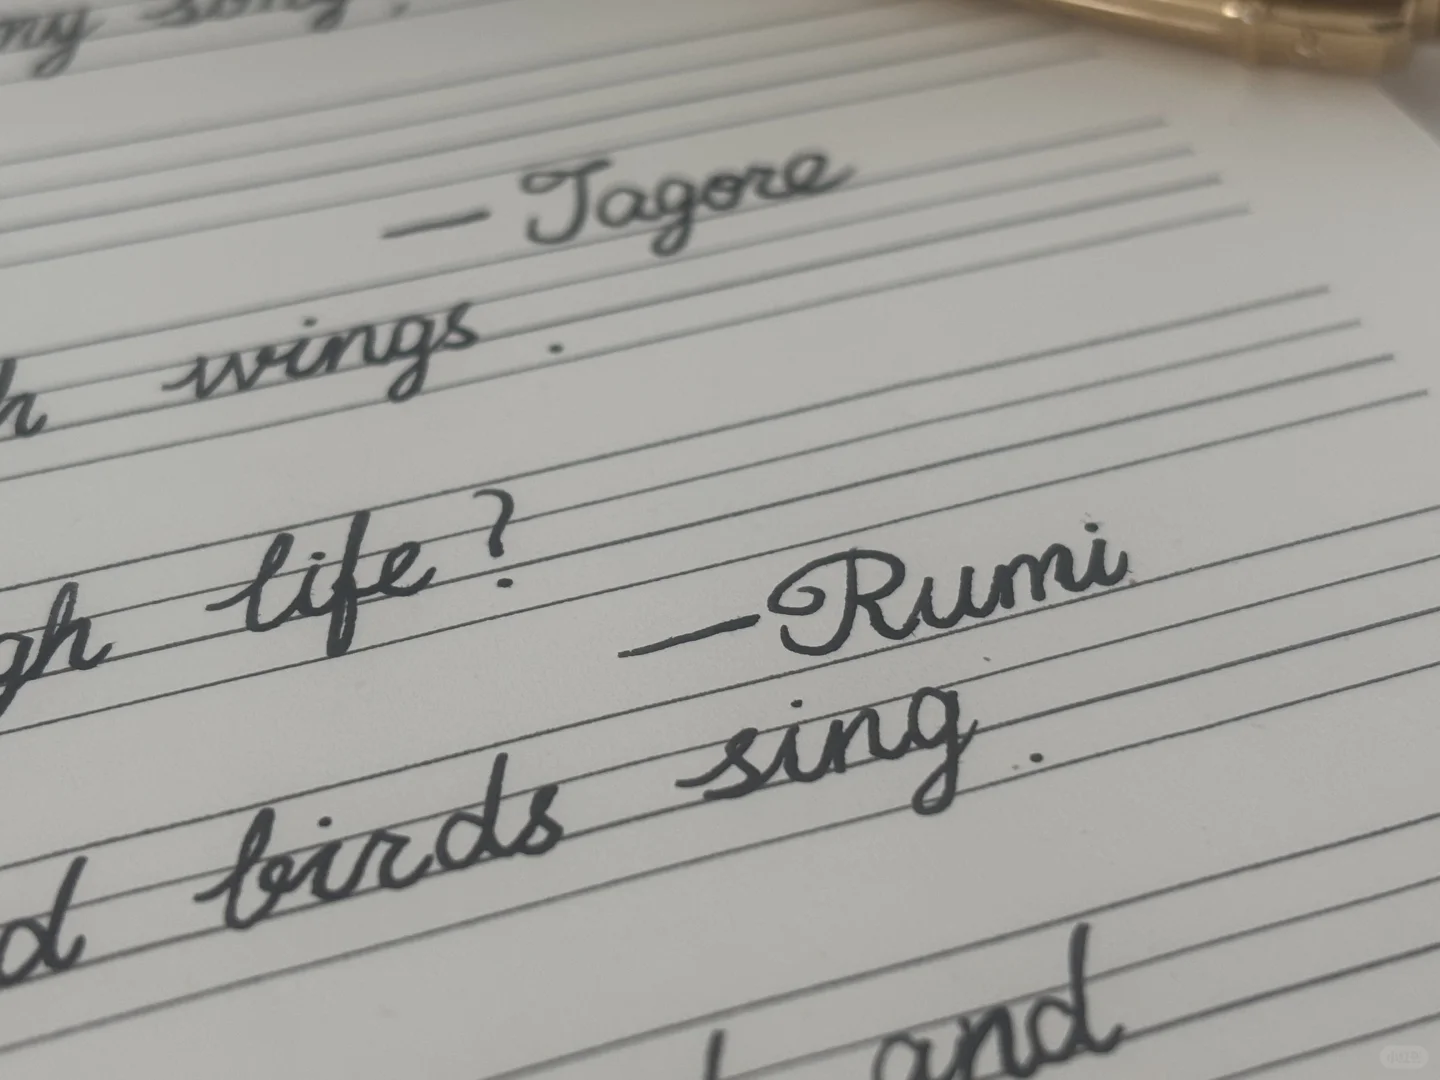 my song.
— Tagore
h wings.
gh life?
— Rumi
d birds sing.
and